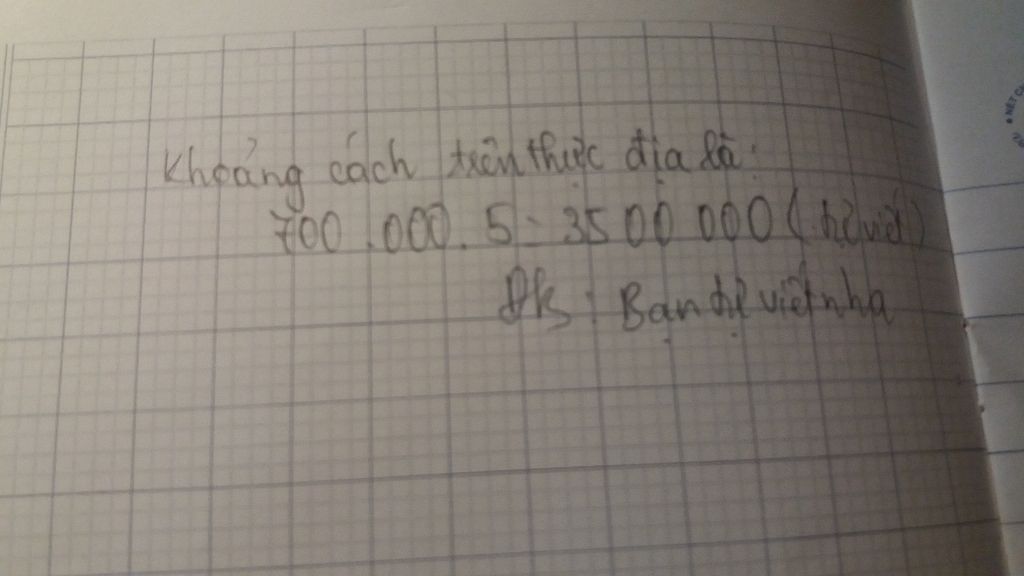 Khoảng cách trên thực địa là:
700.000.5=3500 000 (tự viết)
Đk: Bạn tự viết nha